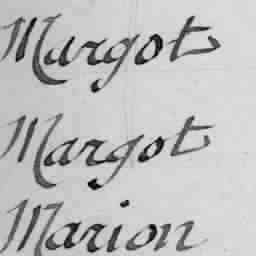 Margot
Margot
Marion